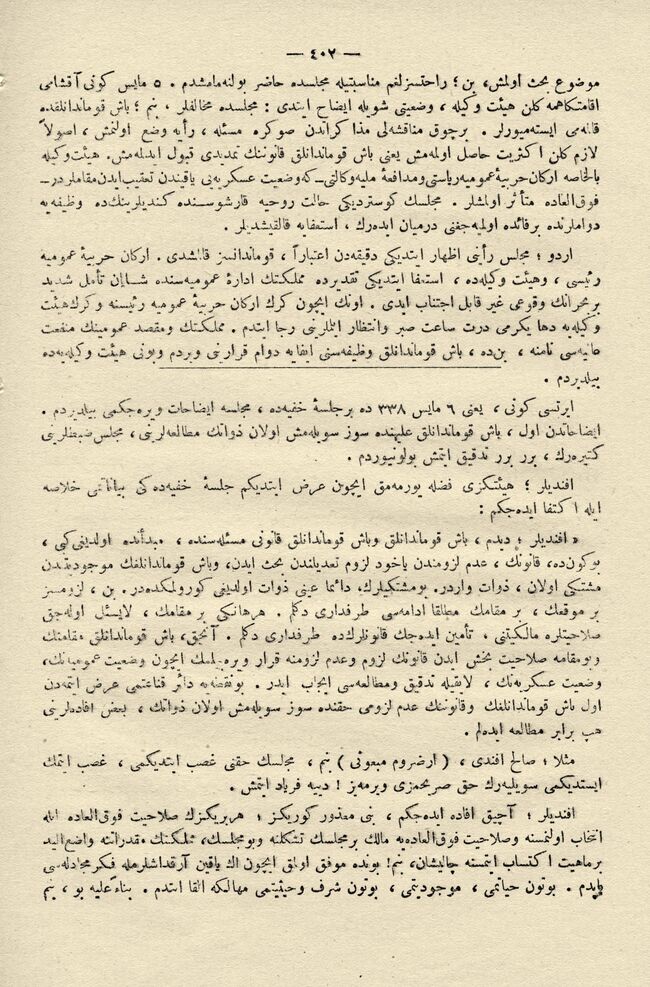 — ٤٠٢ —
موضوع بحث اولمش، بن؛ راحتسزلغم مناسبتیله مجلسده حاضر بولنه‌مامشدم. ٥ مایس كونی آقشامی
اقامتكاهمه كلن هیئت وكیله، وضعیتی شویله ایضاح ایتدی: مجلسده مخالفلر، بنم؛ باش قوماندانلقده
قالمه‌می ایسته‌میورلر. برچوق مناقشه‌لی مذاكراتدن صوكره مسئله، رأیه وضع اولنمش، اصولاً
لازم كلن اكثریت حاصل اوله‌مش یعنی باش قوماندانلق قانوننك تمدیدی قبول ایدلمه‌مش. هیئت وكیله
بالخاصه اركان حربیۀ عمومیه ریاستی ومدافعۀ ملیه وكالتی ــ كه وضعیت عسكریه‌یی یاقیندن تعقیب ایدن مقاملردر ــ
فوق‌العاده متأثر اولمشلر. مجلسك كوستردیكی حالت روحیه قارشوسنده كندیلرینك‌ده وظیفه‌یه
دواملرنده برفائده اولمیه‌جغنی درمیان ایده‌رك، استعفایه قالقیشدیلر.
اردو؛ مجلس رأینی اظهار ایتدیكی دقیقه‌دن اعتباراً، قوماندانسز قالمشدی. اركان حربیۀ عمومیه
رئیسی، وهیئت وكیله‌ده، استعفا ایتدیكی تقدیرده مملكتك ادارۀ عمومیه‌سنده شایان تأمل شدید
بر بحرانك وقوعی غیر قابل اجتناب ایدی. اونك ایچون كرك اركان حربیۀ عمومیه رئیسنه وكرك هیئت
وكیله‌یه دها یكرمی درت ساعت صبر وانتظار ایتملرینی رجا ایتدم. مملكتك ومقصد عمومینك منفعت
عالیه‌سی نامنه، بن‌ده، باش قوماندانلق وظیفه‌سنی ایفایه دوام قرارینی ویردم وبونی هیئت وكیله‌یه‌ده
بیلدیردم.
ایرتسی كونی، یعنی ٦ مایس ٣٣٨ ده برجلسۀ خفیه‌ده، مجلسه ایضاحات ویره‌جكمی بیلدیردم.
ایضاحاتدن اول، باش قوماندانلق علیهنده سوز سویله‌مش اولان ذواتك مطالعه‌لرینی، مجلس ضبطلرینی
كتیره‌رك، برر برر تدقیق ایتمش بولونیوردم.
افندیلر؛ هیئتكزی فضله یورمه‌مق ایچون عرض ایتدیكم جلسۀ خفیه‌ده‌كی بیاناتمی خلاصه
ایله اكتفا ایده‌جكم:
« افندیلر؛ دیدم، باش قوماندانلق وباش قوماندانلق قانونی مسئله‌سنده، مبدأنده اولدیغی كبی،
بوكون‌ده، قانونك، عدم لزومندن یاخود لزوم تعدیلندن بحث ایدن، وباش قوماندانلغك موجودیتندن
مشتكی اولان، ذوات واردر. بومشتكیلرك، دائما عینی ذوات اولدیغی كورولمكده‌در. بن، لزومسز
بر موقعك، بر مقامك مطلقا ادامه‌سی طرفداری دكلم. هرهانكی بر مقامك، لایسئل اوله‌جق
صلاحیتلره مالكیتنی، تأمین ایده‌جك قانونلرك‌ده طرفداری دكلم. آنجق، باش قوماندانلق مقامنك
وبومقامه صلاحیت بخش ایدن قانونك لزوم وعدم لزومنه قرار ویره‌بیلمك ایچون وضعیت عمومیه‌نك،
وضعیت عسكریه‌نك، لایقیله تدقیق ومطالعه‌سی ایجاب ایدر. بونقطه‌یه دائر قناعتمی عرض ایتمه‌دن
اول باش قوماندانلغك وقانوننك عدم لزومی حقنده سوز سویله‌مش اولان ذواتك، بعض افاده‌لرینی
هپ برابر مطالعه ایده‌لم.
مثلا؛ صالح افندی، (ارضروم مبعوثی) بنم، مجلسك حقنی غصب ایتدیكمی، غصب ایتمك
ایستدیكمی سویلیه‌رك حق صریحمزی ویرمه‌یز! دییه فریاد ایتمش.
افندیلر؛ آچیق افاده ایده‌جكم، بنی معذور كوریكز؛ هربریكزك صلاحیت فوق‌العاده ایله
انتخاب اولنمسنه وصلاحیت فوق‌العاده‌یه مالك برمجلسك تشكلنه وبومجلسك، مملكتك مقدراتنه واضع‌الید
برماهیت اكتساب ایتمسنه چالیشان، بنم! بونده موفق اولمق ایچون اك یاقین آرقداشلرمله فكر مجادله‌سی
یاپدم. بوتون حیاتمی، موجودیتمی، بوتون شرف وحیثیتمی مهالكه القا ایتدم. بناءً علیه بو، بنم